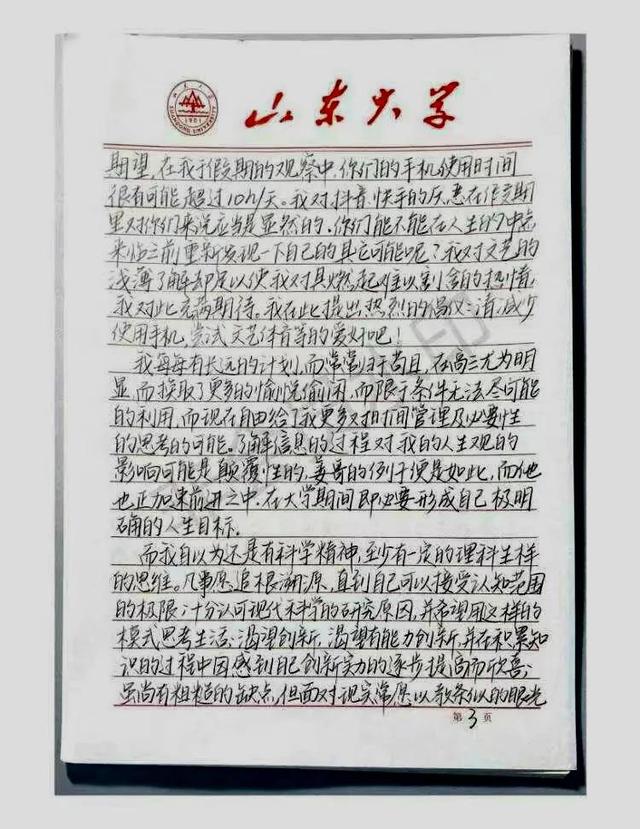 山东大学
SHANDONG UNIVERSITY
1901
期望,在我于假期的观察中,你们的手机使用时间
很有可能超过10h/天。我对抖音、快手的厌恶在作交期
里对你们来说应当是显然的。你们能不能在人生的夕中
来临之前重新发现一下自己的其它可能呢?我对文艺的
浅薄了解却足以使我对其燃起难以割舍的热情,
我对此充满期待。我在此提出热烈的倡仪:请减少
使用手机,尝试文艺体育等的爱好吧!
我每每有长远的计划,而常常归于苟且,在高三尤为明
显,而换取了更多的愉悦偷闲,而限于条件无法尽可能
的利用,而现在自由给了我更多对时间管理及必要性
的思考的可能。了解信息的过程对我的人生观的
影响可能是颠覆性的,姜哥的例子便是如此,而他
也正加速前进之中。在大学期间即必要形成自己极明
确的人生目标。
而我自以为还是有科学精神,至少有一定的理科生样
的思维。凡事愿追根溯源,直到自己可以接受认知范围
的极限;十分认可现代科学的研究原因,并希望用这样的
模式思考生活;渴望创新,渴望有能力创新,并在积累知
识的过程中因感到自己创新实力的逐步提高而欣喜;
虽尚有粗糙的缺点,但面对现实常愿以教条似的眼光
第3页